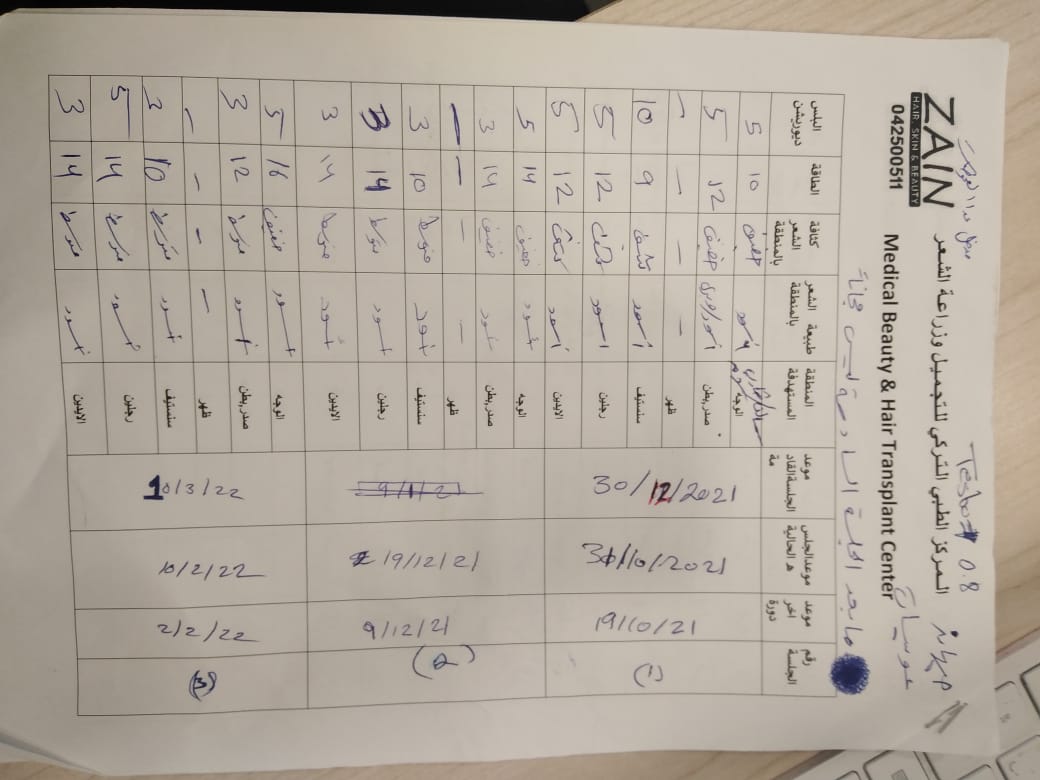 Testo 0.8
ZAIN
HAIR, SKIN & BEAUTY
042500511
المركز الطبي التركي للتجميل وزراعة الشعر
Medical Beauty & Hair Transplant Center
ما بعد الجلسة السادسة ليس مجاناً
رقم الجلسة | موعد اخر دورة | موعد الجلسة الحالية | موعد الجلسة القادمة | المنطقة المستهدفة | طبيعة الشعر بالمنطقة | كثافة الشعر بالمنطقة | الطاقة | البلس ديوريشن
(1) | 19/10/21 | 31/10/2021 | 30/12/2021 | الوجه | اسود | خفيف | 10 | 5
صدر,بطن | خفيف | 12 | 5
ظهر | - | - | - | -
سنستيف | اسود | كثيف | 9 | 10
رجلين | اسود | كثيف | 12 | 5
الايدين | اسود | كثيف | 12 | 5
(2) | 9/12/21 | 19/12/21 | 9/1/21 | الوجه | اسود | خفيف | 14 | 5
صدر,بطن | اسود | خفيف | 14 | 3
ظهر | - | - | -
سنستيف | اسود | متوسط | 10 | 3
رجلين | اسود | متوسط | 14 | 3
الايدين | اسود | متوسط | 14 | 3
(3) | 2/2/22 | 10/2/22 | 10/3/22 | الوجه | اسود | خفيف | 16 | 5
صدر,بطن | اسود | متوسط | 12 | 3
ظهر | - | - | - | -
سنستيف | اسود | متوسط | 10 | 3
رجلين | اسود | متوسط | 14 | 5
الايدين | اسود | متوسط | 14 | 3